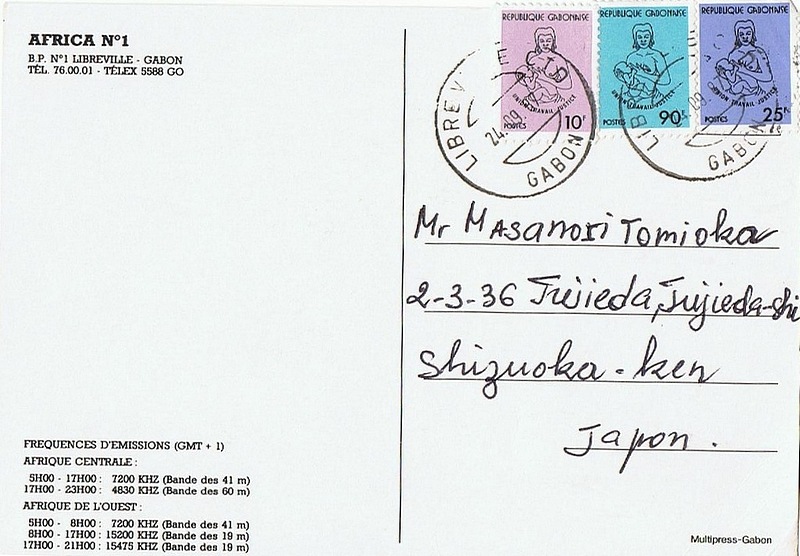 AFRICA N°1
B.P. N°1 LIBREVILLE - GABON
TÉL. 76.00.01 - TÉLEX 5588 GO
REPUBLIQUE GABONAISE
UNION TRAVAIL JUSTICE
POSTES 10F
REPUBLIQUE GABONAISE
UNION TRAVAIL JUSTICE
POSTES 90F
REPUBLIQUE GABONAISE
UNION TRAVAIL JUSTICE
POSTES 25F
LIBREV
24.09
GABON
LIB
09
GABON
Mr Masanori Tomioka
2-3-36 Fujieda, Fujieda-shi
Shizuoka-ken
Japon.
FREQUENCES D'EMISSIONS (GMT + 1)
AFRIQUE CENTRALE :
5H00 - 17H00 : 7200 KHZ (Bande des 41 m)
17H00 - 23H00 : 4830 KHZ (Bande des 60 m)
AFRIQUE DE L'OUEST :
5H00 - 8H00 : 7200 KHZ (Bande des 41 m)
8H00 - 17H00 : 15200 KHZ (Bande des 19 m)
17H00 - 21H00 : 15475 KHZ (Bande des 19 m)
Multipress-Gabon